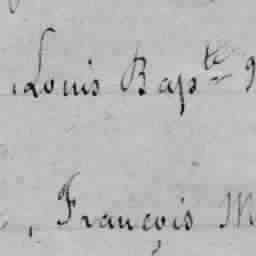 Louis Bapte
, François